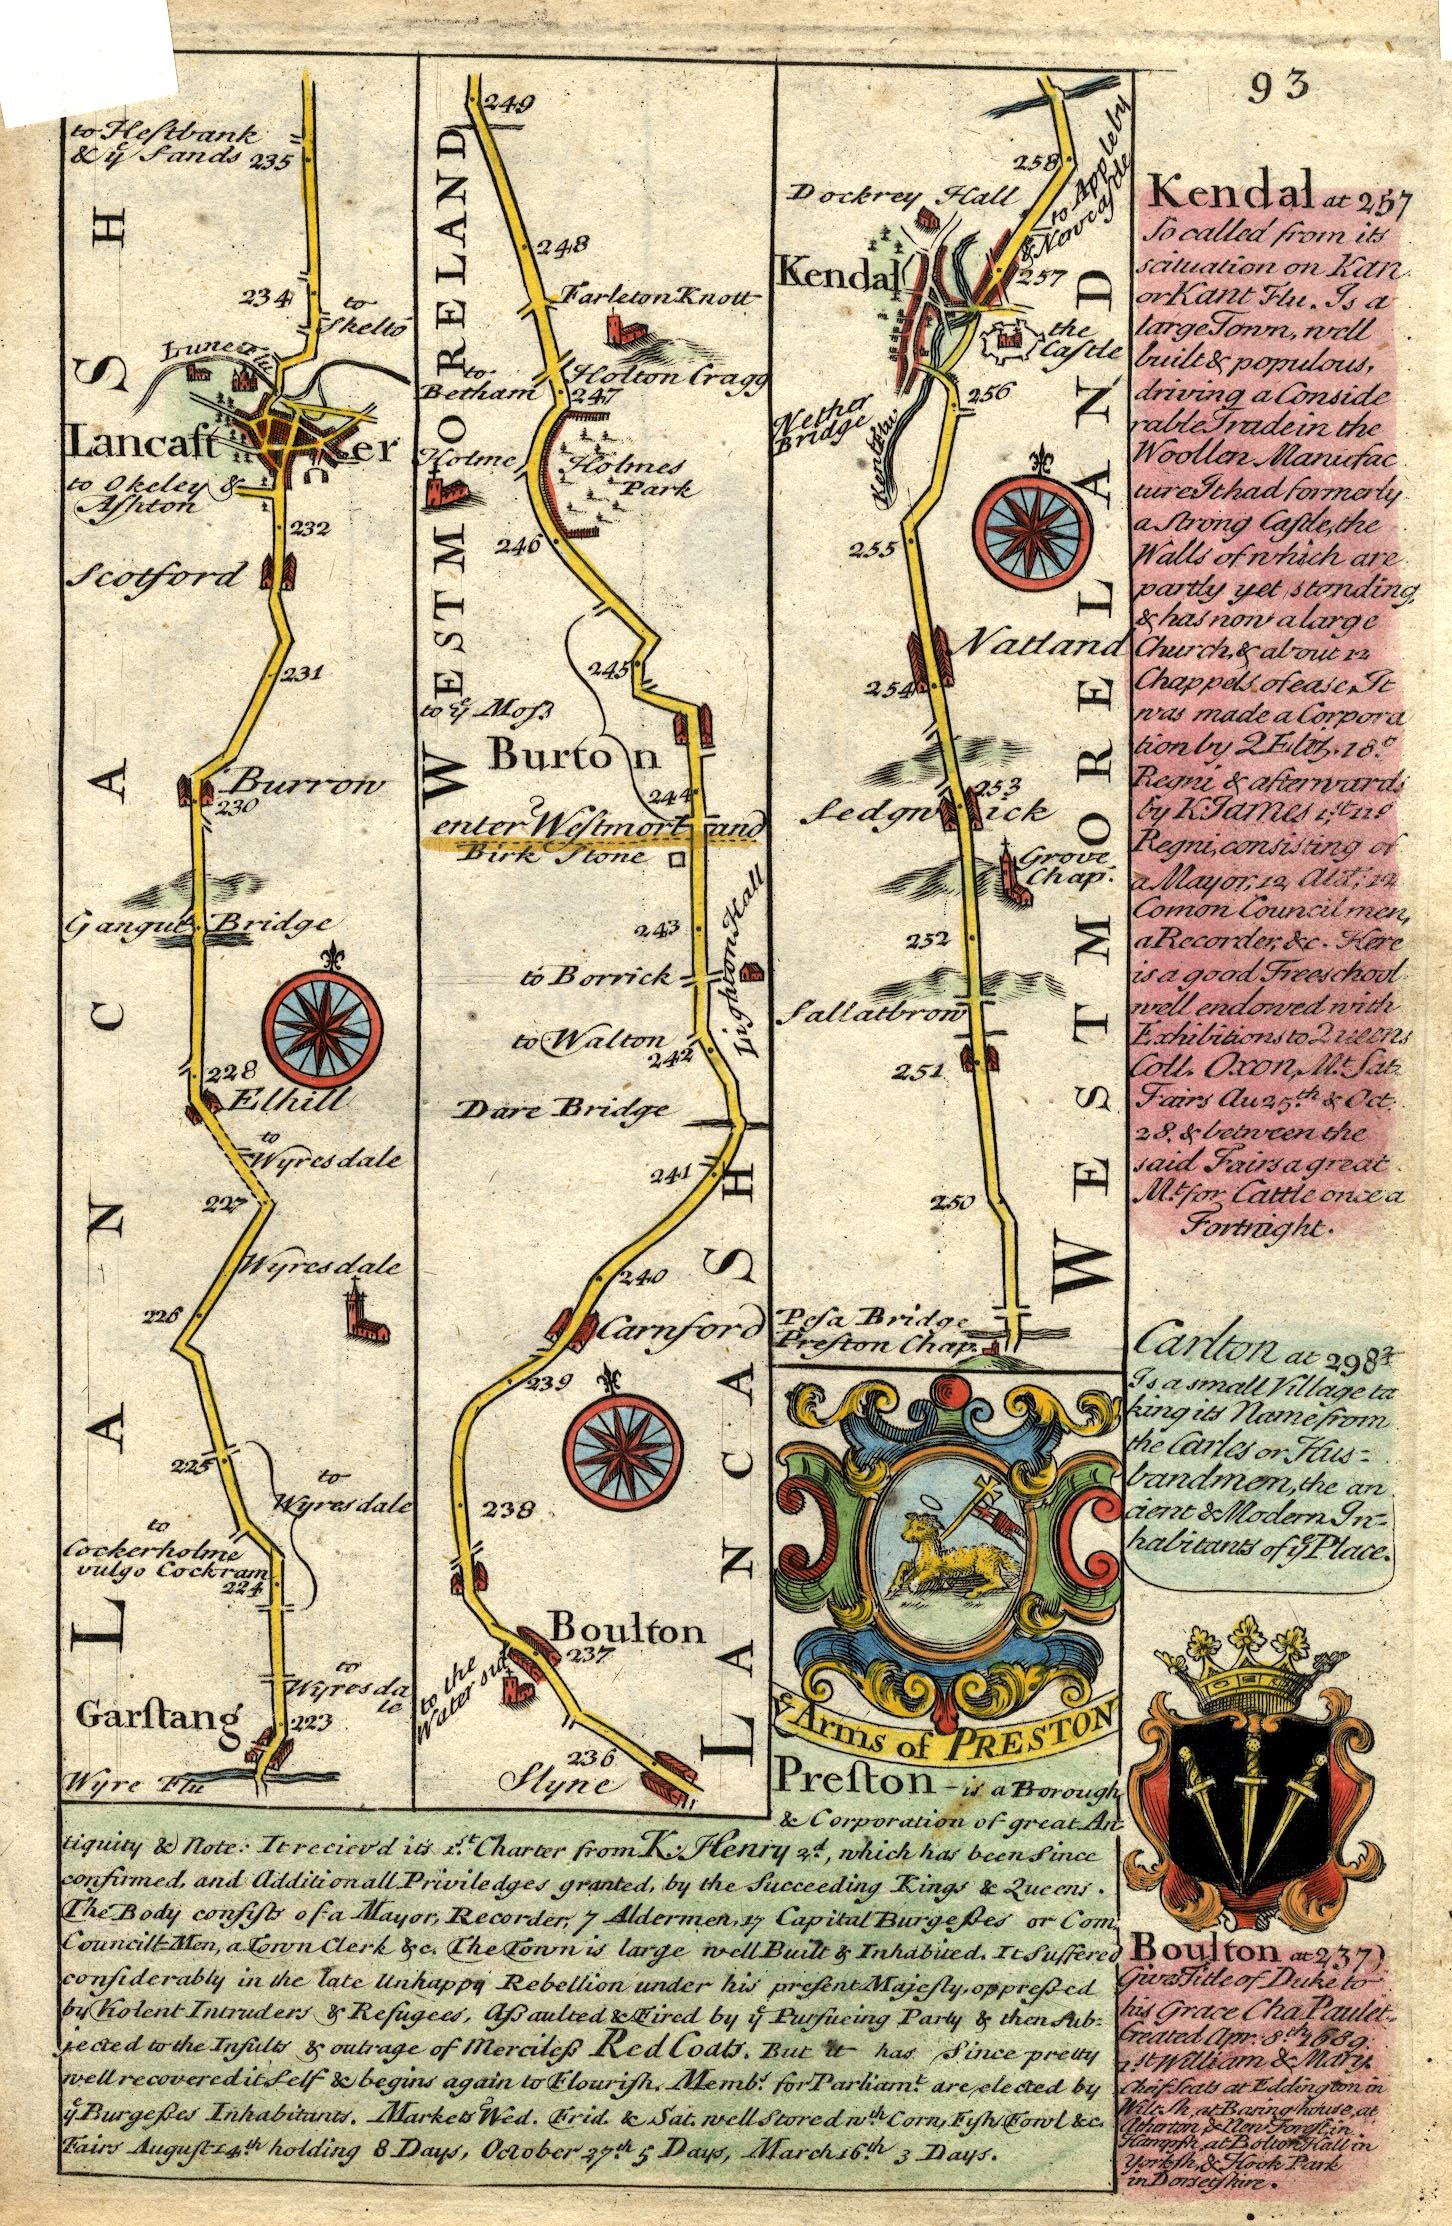 93
to Heſtbank
& yͤ Sands 235
234
to
Skelto
Lune Flu
Lancaſter
to Okeley &
Aſhton
232
Scotford
231
Burrow
230
Bridge
228
Elhill
to
Wyresdale
227
Wyresdale
226
225
to
Wyresdale
to
Cockerholme
vulgo Cockram
224
to
Wyresda
le
Garſtang
223
Wyre Flu
LANCASH
249
248
Farleton Knott
to
Betham
Holton Cragg
247
Holme
Holmes
Park
246
245
to yͤ Moſs
Burton
244
enter Weſtmorland
Birk Stone
243
to Borrick
Lighton Hall
to Walton
242
Dare Bridge
241
240
Carnford
239
238
Boulton
237
to the
Water side
236
Slyne
WESTMORELAND
LANCASH
258
to Appleby
& Newcaſtle
Dockrey Hall
Kendal
257
the
Caſtle
256
Nether
Bridge
Kent Flu
255
Natland
254
253
Sedgwick
Grove
Chap.
252
Sallatbrow
251
250
Peſa Bridge
Preſton Chap.
WESTMORELAND
yͤ Arms of PRESTON
Kendal at 257
So called from its
scituation on Kan
or Kant Flu. Is a
large Town, well
built & populous,
driving a Conside
rable Trade in the
Woollen Manufac
ture It had formerly
a Strong Caſtle, the
Walls of which are
partly yet standing,
& has now a large
Church, & about 12
Chappels of ease. It
was made a Corpora
tion by Q Eliz. 18.º
Regni & afterwards
by K. James 1st.
Regni, consisting of
a Mayor, 12 Ald. 12
Comon Council men,
a Recorder, &c. Here
is a good Freeschool
well endowed with
Exhibitions to Queens
Coll. Oxon, Mt. Sat.
Fairs Au 25th & Oct.
28. & between the
said Fairs a great
Mt. for Cattle once a
Fortnight.
Carlton at 298¾
Is a small Village ta
king its Name from
the Carles or Hus-
bandmen, the an
cient & Modern In-
habitants of yͤ Place.
Preſton - is a Borough
& Corporation of great An
tiquity & Note: It reciev'd it's 1.st Charter from K. Henry 2.d, which has been Since
confirmed, and Additionall Priviledges granted, by the Succeeding Kings & Queens.
The Body conſiſts of a Mayor, Recorder, 7 Aldermen, 17 Capital Burgeſses or Com
Council-Men, a Town Clerk &c. The Town is large well Built & Inhabited. It Suffered
conſiderably in the late Unhappy Rebellion under his preſent Majeſty, oppreſsed
by Violent Intruders & Refugees, Aſsaulted & Fired by yͤ Purſueing Party & then Sub-
jected to the Inſults & outrage of Mercileſs Red Coats. But it has Since pretty
well recovered it Self & begins again to Flouriſh. Memb.s for Parliam.t are elected by
yͤ Burgeſses Inhabitants. Markets Wed. Frid. & Sat. well Stored wth. Corn, Fiſh, Fowl &c.
Fairs Auguſt 14th holding 8 Days, October 27th 5 Days, March 16th 3 Days.
Boulton at 237)
Gives Title of Duke to
his Grace Cha Paulet.
Created Apr. 8th 1689.
1st William & Mary.
Cheif Seats at Eddington in
Wilt-sh, at Basing house, at
Atherton, & New Foreſt in
Hampſh. at Bolton Hall in
Yorkſh, & Hook Park
in Dorsetſhire.